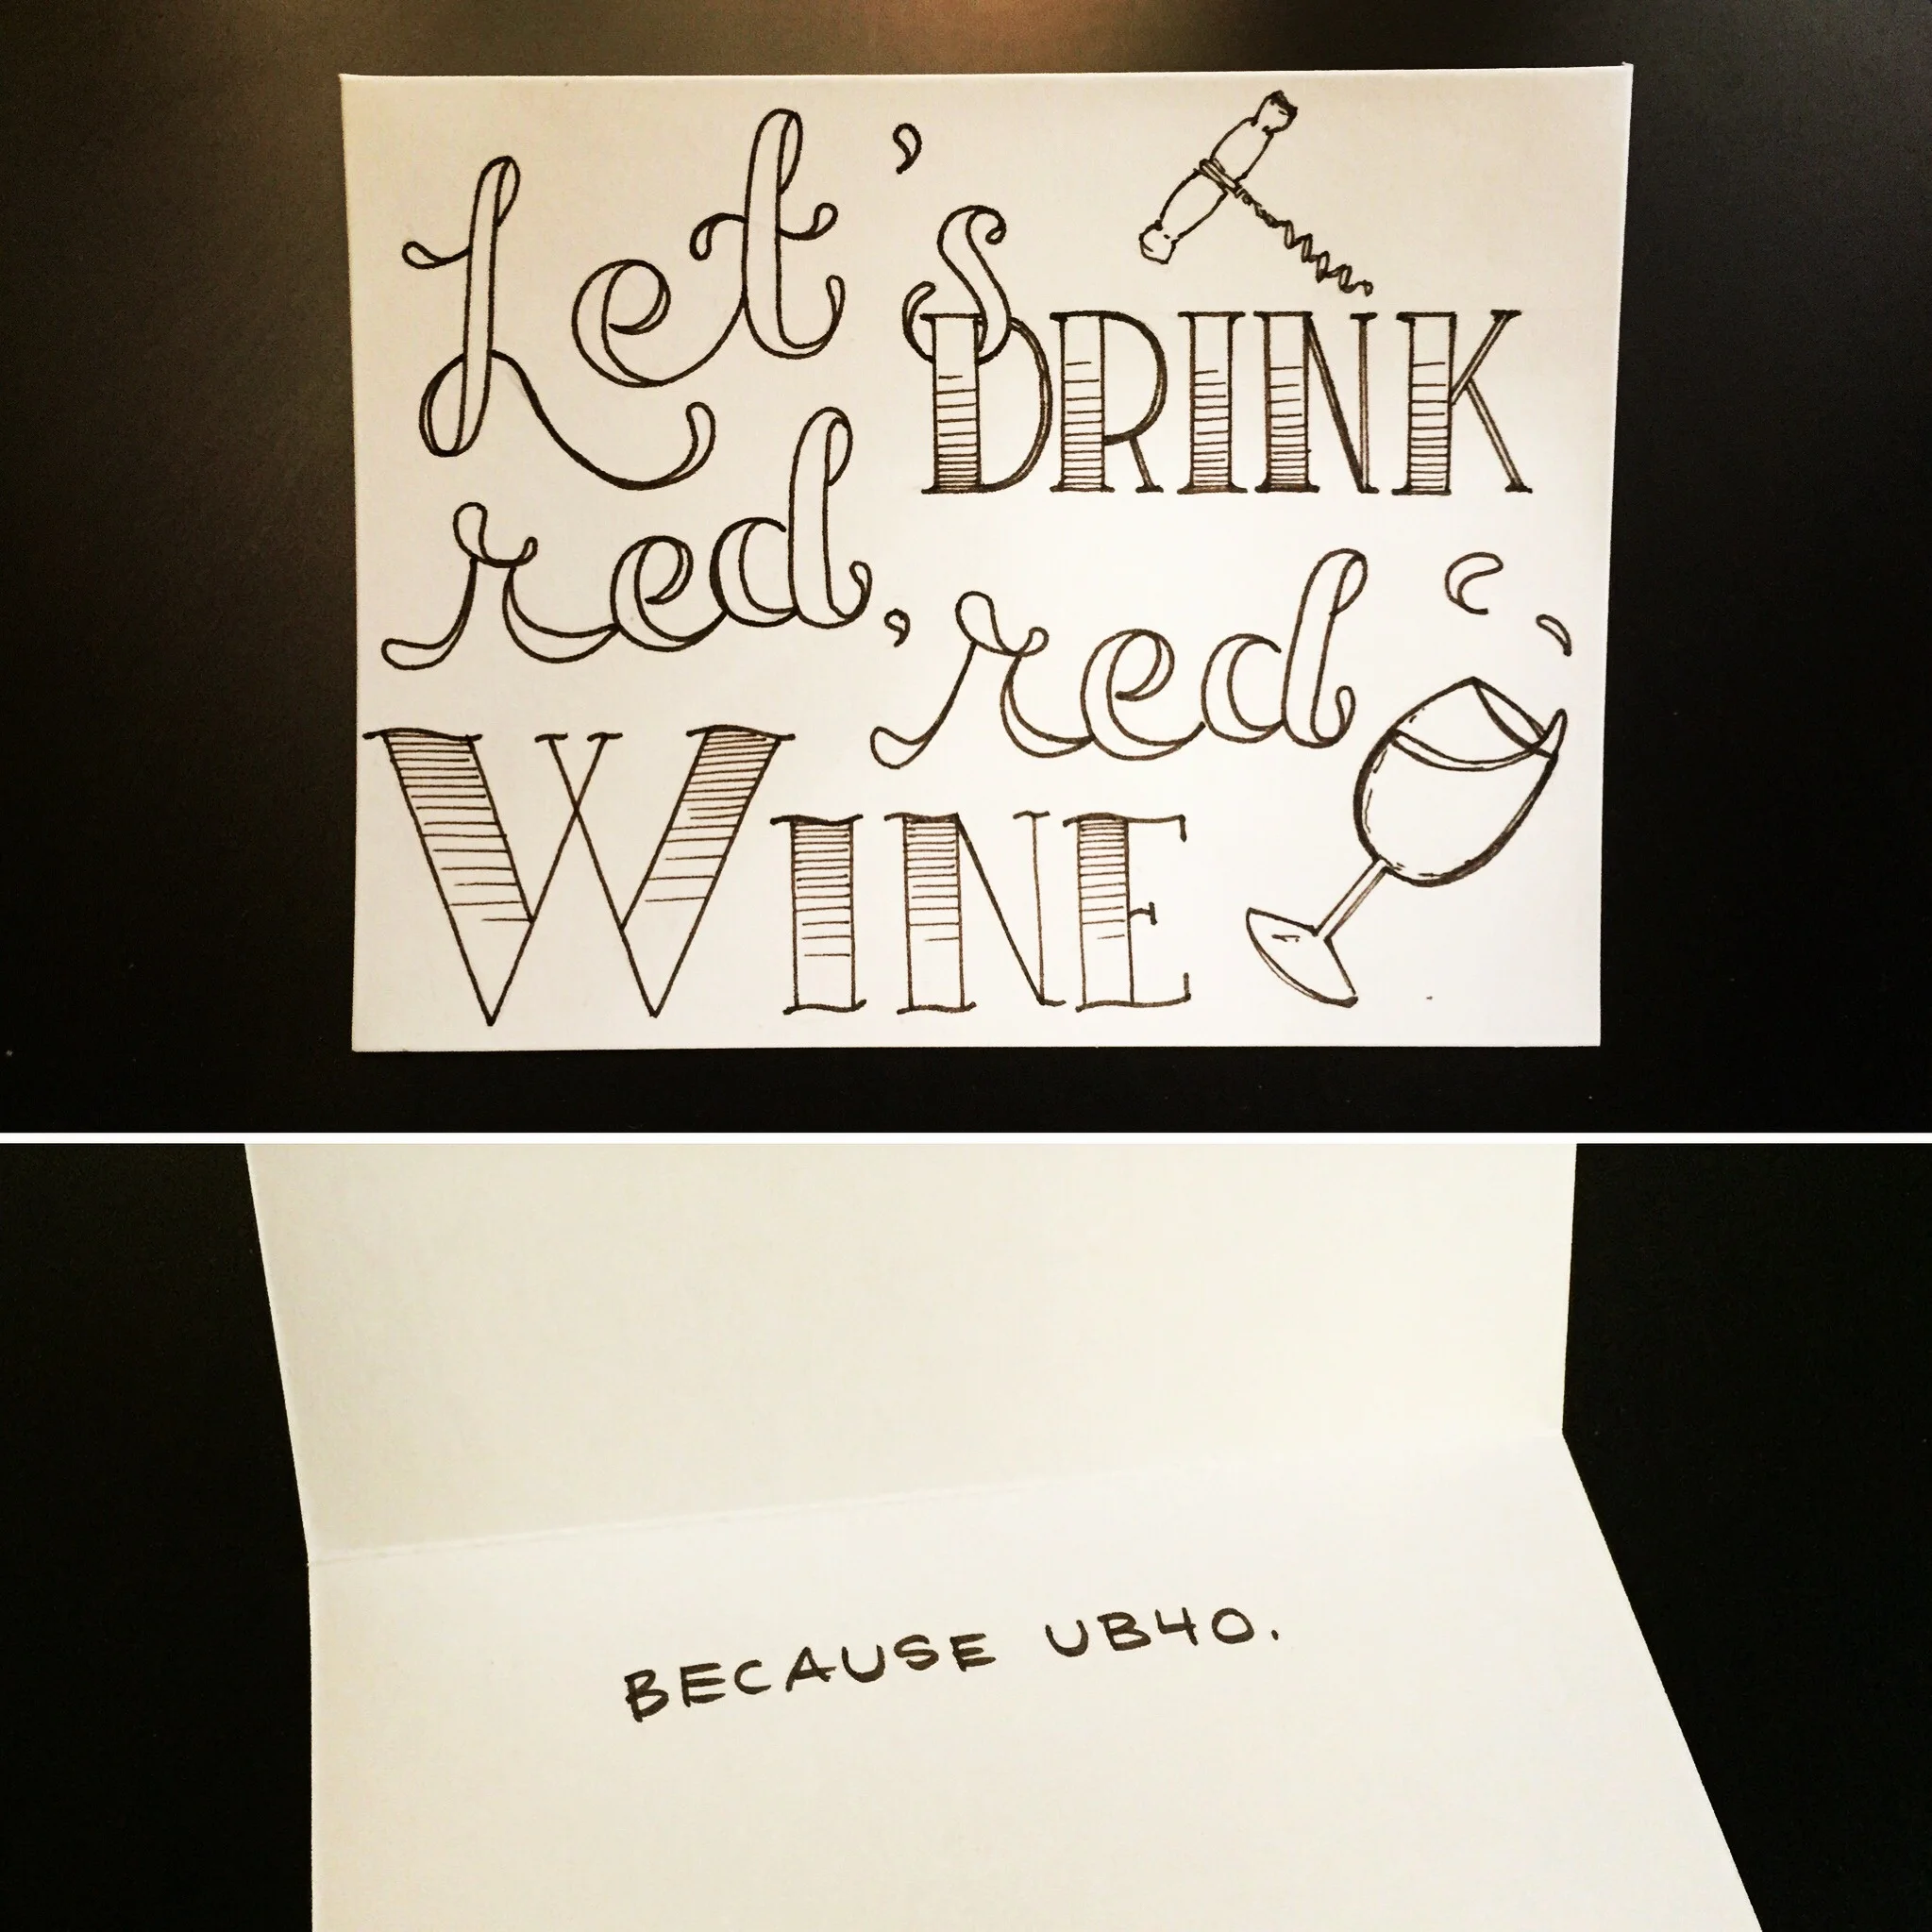 Let's DRINK
red, red
WINE
BECAUSE UB40.